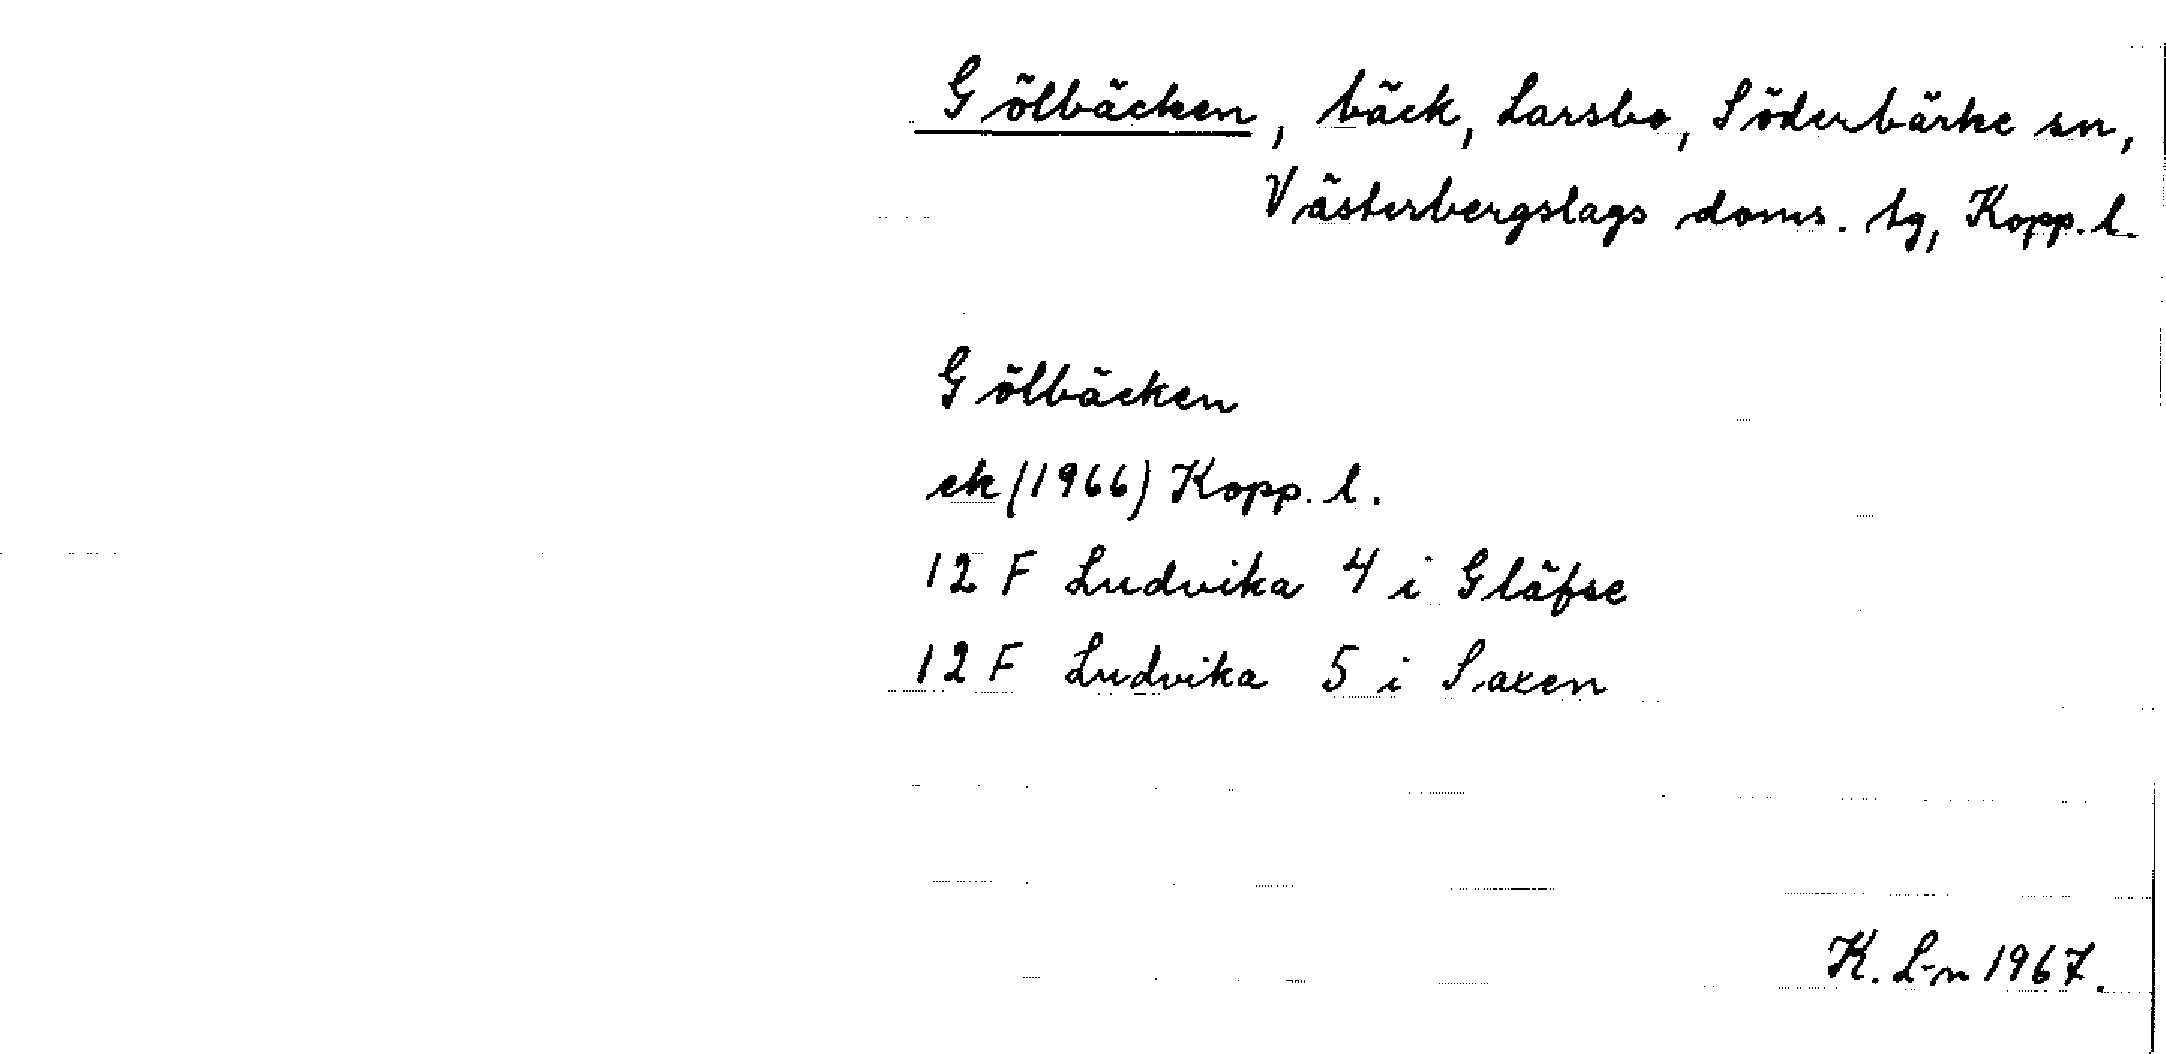 Gölbäcken, bäck, Larsbo, Söderbärke sn,
Västerbergslags doms. tg, Kopp. l.
Gölbäcken
ek (1966) Kopp. l.
12 F Ludvika 4 i Gläfse
12 F Ludvika 5 i Saxen
K. L-n 1967.